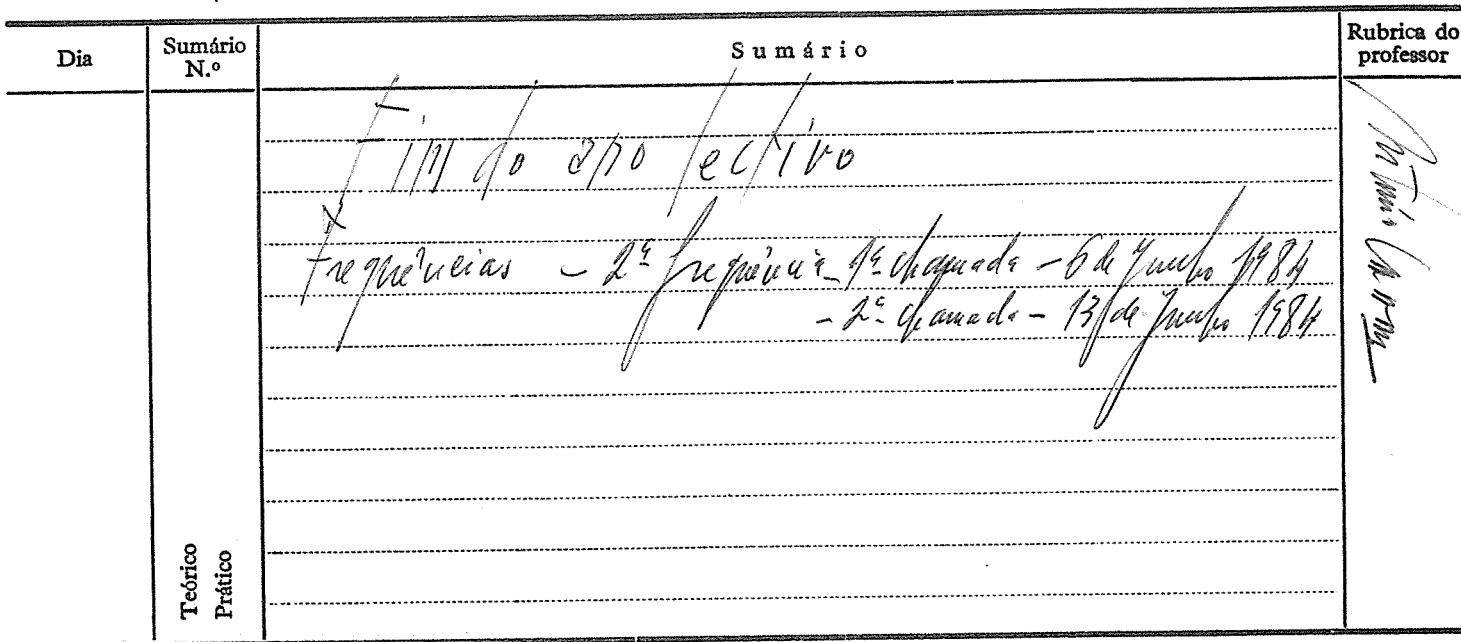 Dia
Sumário N.º
Sumário
Rubrica do professor
Fim do ano lectivo
Frequências - 2ª frequência - 1ª chamada - 6 de Junho 1984
- 2ª chamada - 13 de Junho 1984
Teórico
Prático